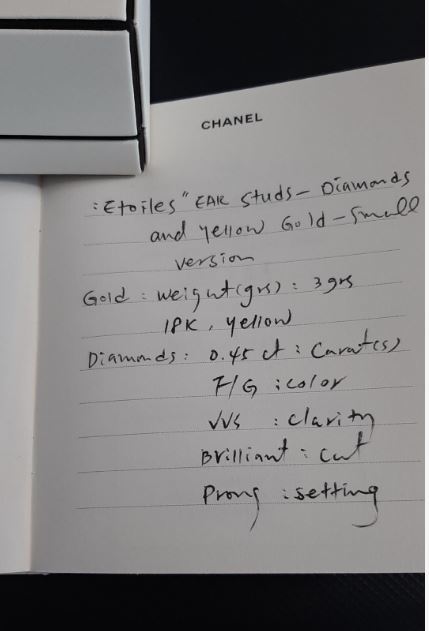 CHANEL
: Etoiles" EAR Studs - Diamonds
and yellow Gold - Small
version
Gold : weight(grs) : 3 grs
18K, yellow
Diamonds : 0.45 ct : Carat(s)
F/G : color
VVS : clarity
Brilliant : cut
Prong : setting